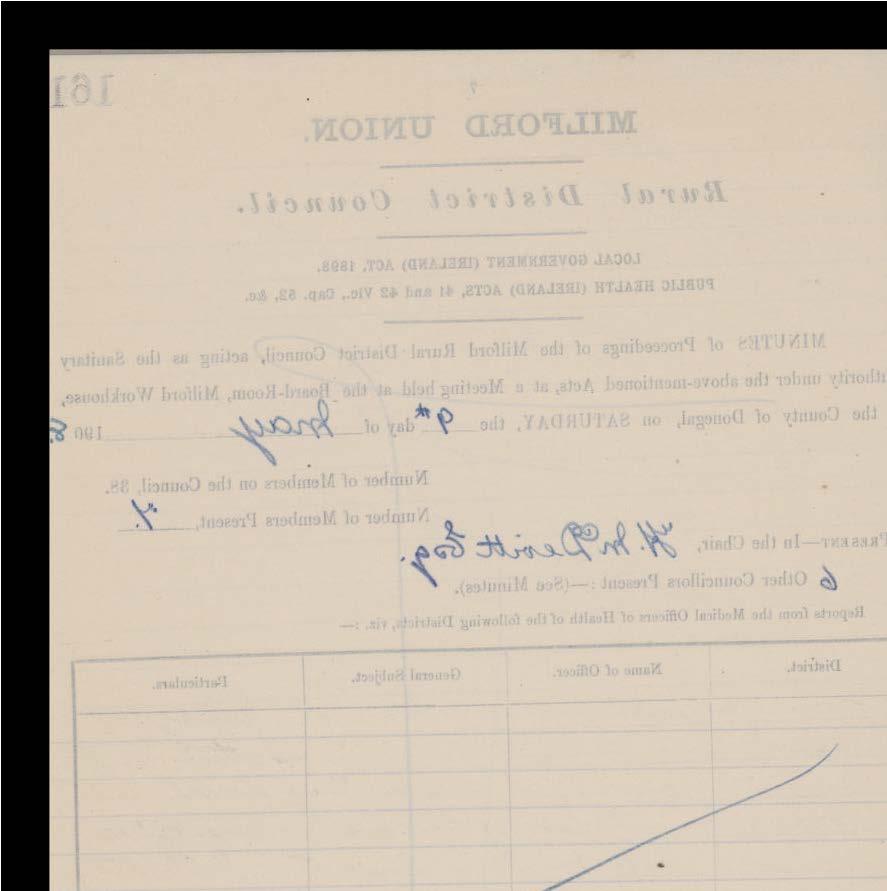 161
7
MILFORD UNION.
Rural District Council.
LOCAL GOVERNMENT (IRELAND) ACT, 1898.
PUBLIC HEALTH (IRELAND) ACTS, 41 and 42 Vic., Cap. 52, &c.
MINUTES of Proceedings of the Milford Rural District Council, acting as the Sanitary
uthority under the above-mentioned Acts, at a Meeting held at the Board-Room, Milford Workhouse,
the County of Donegal, on SATURDAY, the 9th day of May 1908
Number of Members on the Council, 38.
Number of Members Present, 7.
PRESENT—In the Chair, H. McDevitt Esq.
6 Other Councillors Present :—(See Minutes).
Reports from the Medical Officers of Health of the following Districts, viz. :—
District. Name of Officer. General Subject. Particulars.